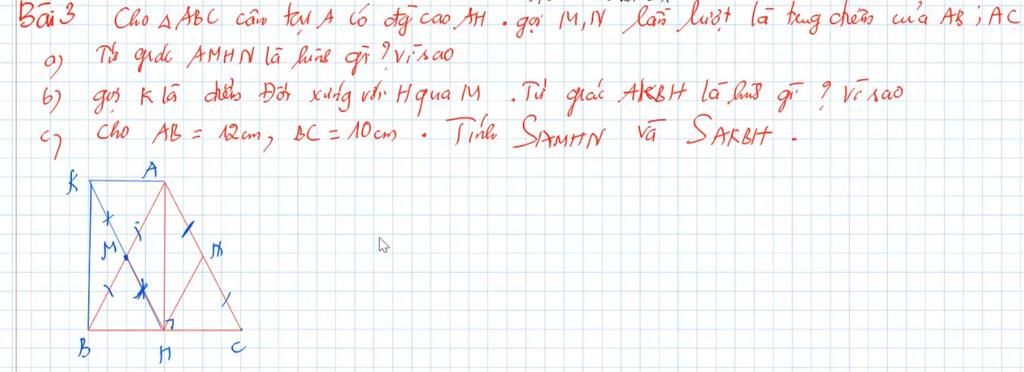 Bài 3 Cho △ABC cân tại A có đg cao AH. gọi M, N lần lượt là trung điểm của AB; AC
a) Tứ giác AMHN là hình gì? vì sao
b) gọi K là điểm Đối xứng với H qua M. Tứ giác AKBH là hình gì? vì sao
c) Cho AB = 12cm, BC = 10cm. Tính SAMHN và SAKBH.
K A
M N
B H C